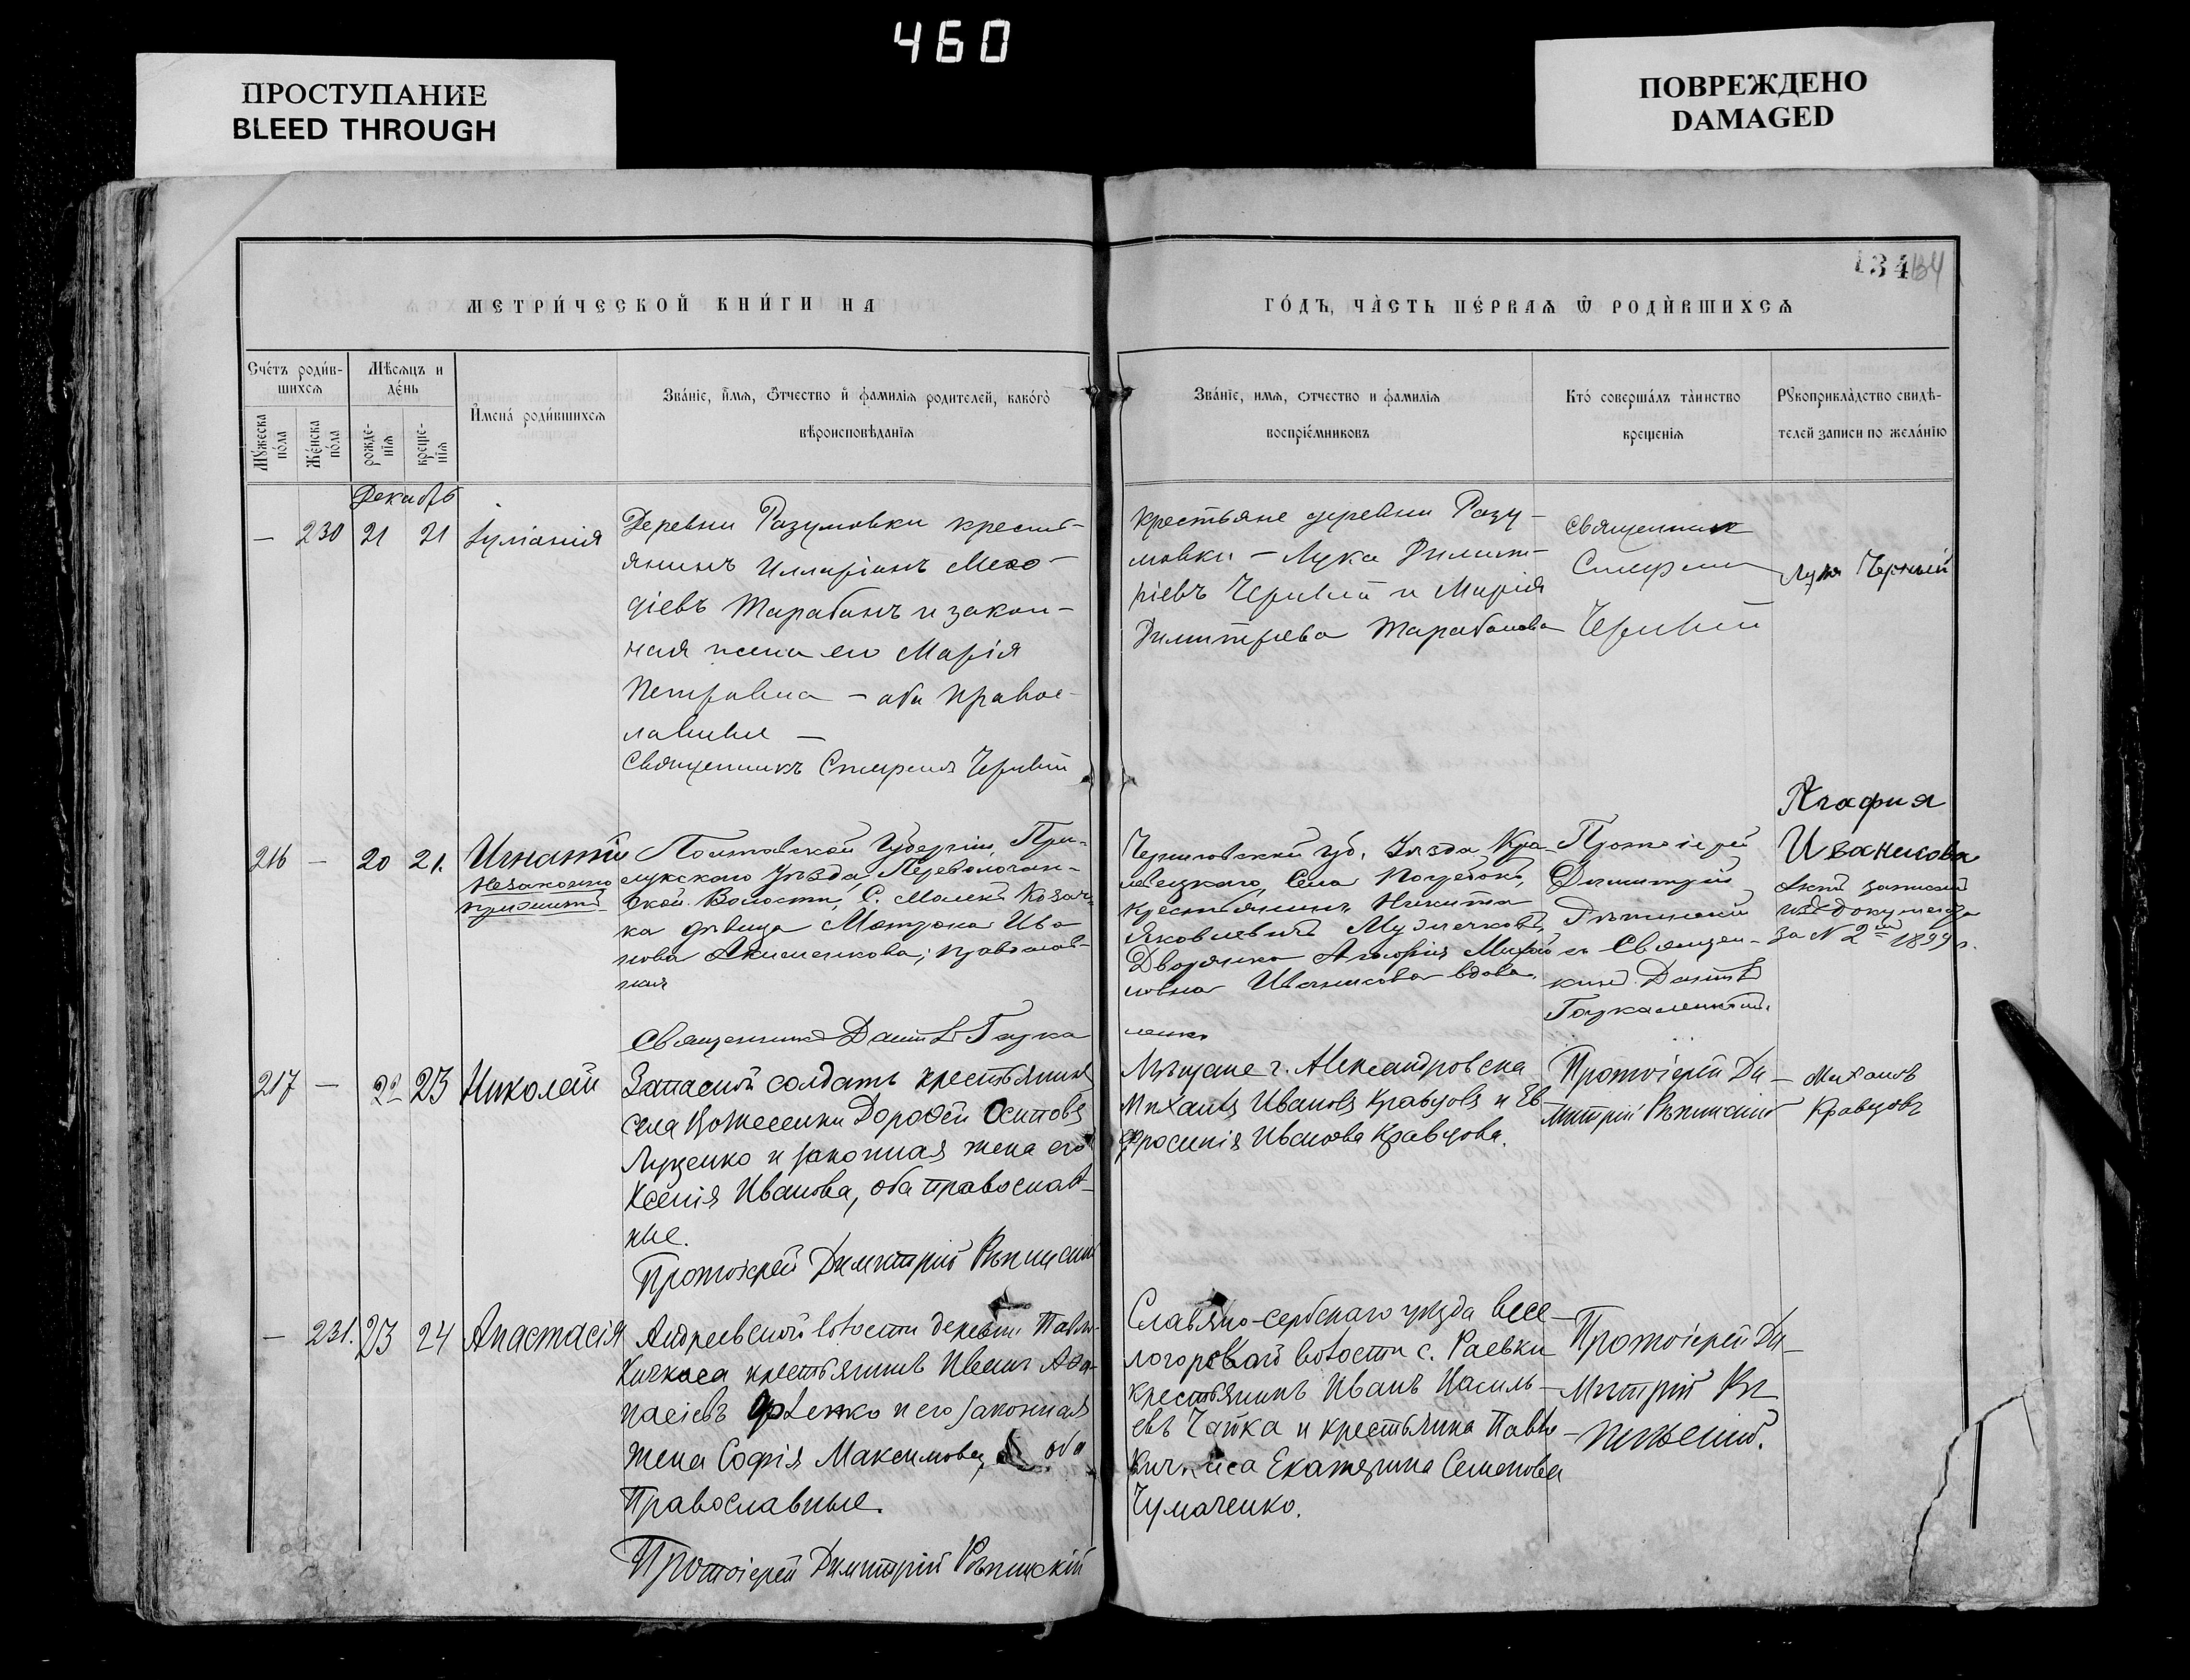 460
ПРОСТУПАНИЕ
BLEED THROUGH
ПОВРЕЖДЕНО
DAMAGED
134 134
МЕТРИ́ЧЕСКОЙ КНИ́ГИ НА
ГО́ДЪ, ЧА̀СТЬ ПЕ́РВАѦ Ѿ РОДЍВШИХСѦ
Сче́тъ роди́в-
шихсѧ
Мѣ́сѧцъ и
де́нь
Му́жеска
по́ла
Же́нска
по́ла
рожде-
нїѧ
креще-
нїѧ
И҆мена́ роди́вшихсѧ
Зва́нїе, и҆́мѧ, ѻ҆́тчество и҆ фамилїѧ родителей, како́гѡ
вѣроисповѣданїѧ
Зва́нїе, имѧ, ѻтчество и фамилїѧ
воспрїе́мниковъ
Кто́ соверша́лъ та̀инство
крещенїѧ
Рꙋкоприкла̀дство свидѣ-
телей записи по жела́нїю
Декабрь
— 230 21 21 Іуліанія
Деревни Разумовки кресть-
янинъ Илларіонъ Меѳо-
діевъ Тарабанъ и закон-
ная жена его Марія
Петровна — оба право-
славные —
Священникъ Спиридонъ Черный
Крестьяне деревни Разу-
мовки — Лука Димит-
ріевъ Черный и Марія
Димитріева Тарабанова
Священник
Черный
Лука Черный
216 — 20 21. Игнатій
Незаконно
прижитый
Полтавской Губерніи, При-
лукскаго уѣзда, Переволочан-
ской Волости, С. Козач-
ка дѣвица Матрона Ива
нова Акименкова; православ-
ная
Священникъ Даніилъ Гаука
ленко
Черниговской губ. Уѣзда Кро-
левецкаго, Села
Крестьянинъ Никита
Яковлевичъ
Дворянка Агафія Михай
ловна Иваникова вдова.
Протоіерей
Димитрій
Рѣпинскій
и Священ-
никъ Даніилъ
Агафия
Иваникова
Актъ записанъ
изъ документа
за N 2 1899 г.
217 — 22 23 Николай
Запасной солдатъ крестьянинъ
села Вознесенки Дороѳей Осиповъ
Луценко и законная жена его
Ксенія Иванова, оба православ-
ные.
Протоіерей Димитрій Рѣпинскій
Мѣщане г. Александровска
Михаилъ Ивановъ Кравцовъ и Ев
фросинія Иванова Кравцова.
Протоіерей Ди-
митрій Рѣпинскій
Михаилъ
Кравцовъ
— 231. 23 24 Анастасія
Андреевской волости деревни Павло-
Кичкаса крестьянинъ Иванъ Аѳа-
насіевъ и его законная
жена Софія Максимова, оба
Православные.
Протоіерей Димитрій Рѣпинскій
Славяно-сербскаго уѣзда Весе-
логорской волости с. Раевки
крестьянинъ Иванъ Василь-
евъ Чайка и крестьянка Павло-
Кичкаса Екатерина Семенова
Чумаченко.
Протоіерей Ди-
митрій Рѣ-
пинскій.